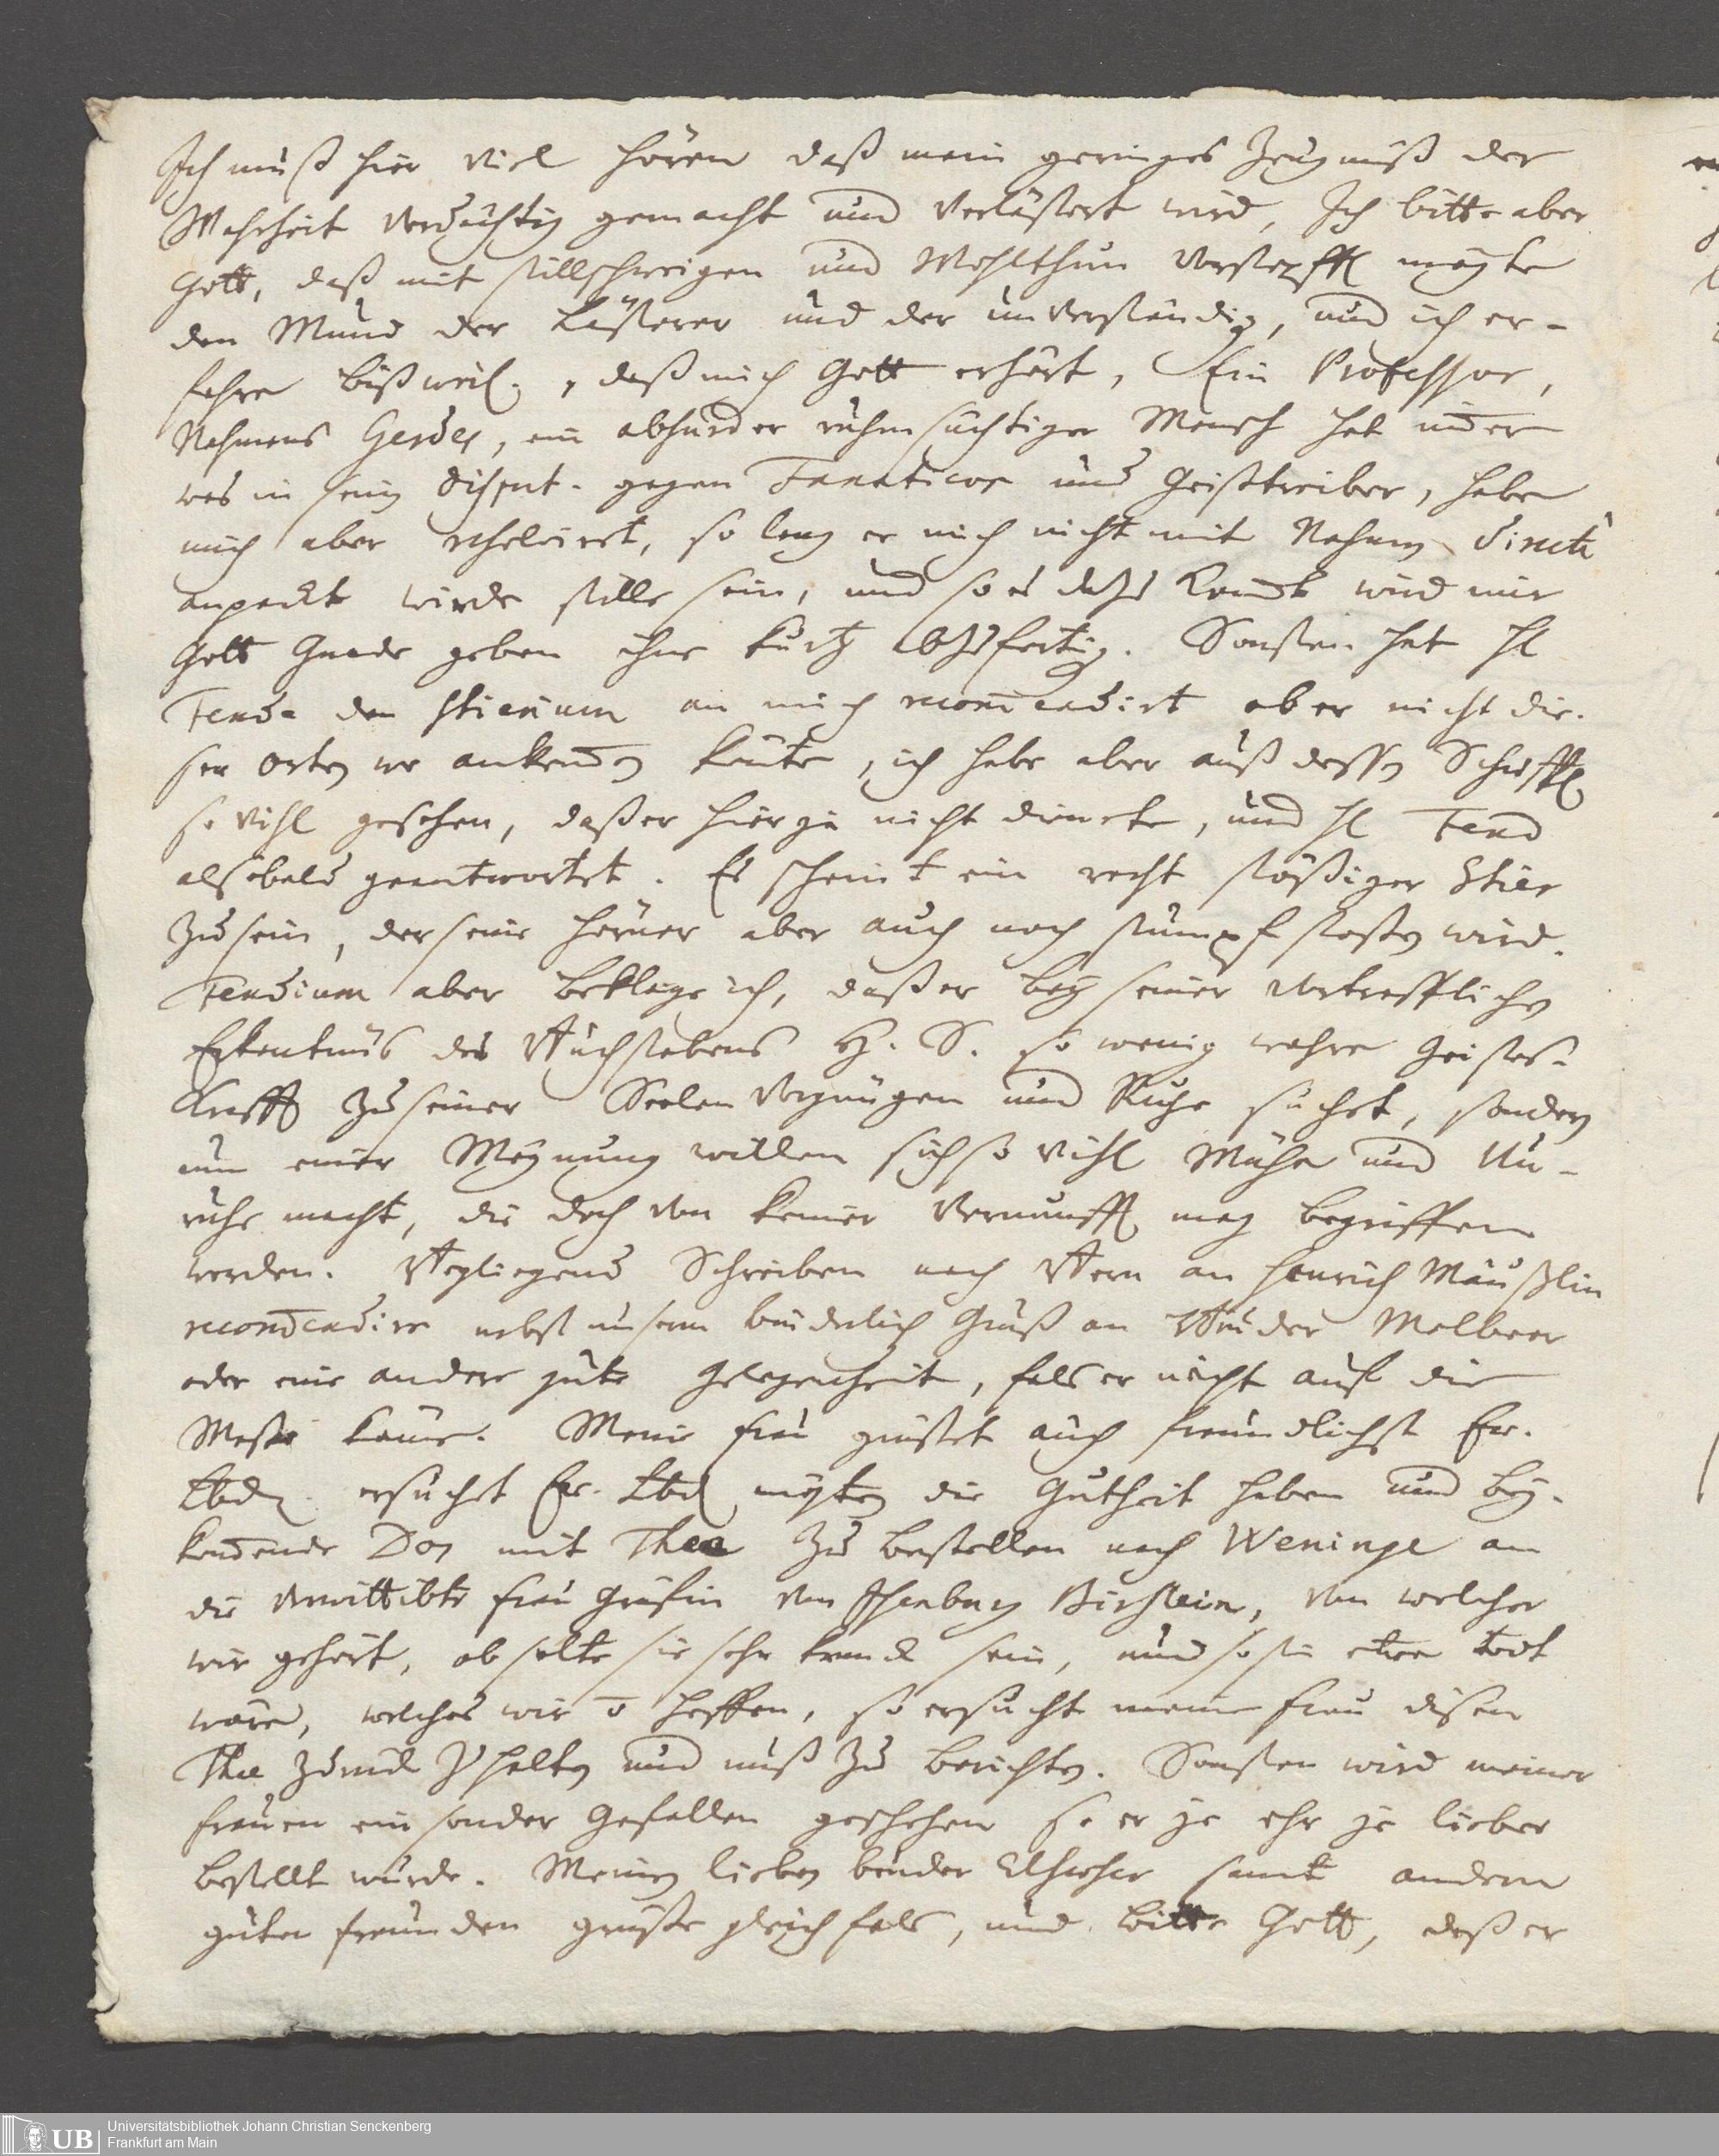 Ich muß hier viel hören daß mein geringes Zeugnuß der
Wahrheit verdächtig gemacht und verlästert wird, Ich bitte aber
Gott, daß mit stillschweigen und Wohlthun verstopfft mögte
den Mund der Lästerer und der unverständig, und ich er-
fahre bißweil., daß mich Gott erhört, Ein Professor,
Nahmens Gerdes, ein absurder ruhmsüchtiger Mensch hat
was in sein disput. gegen Fanaticos und Geisttreiber, habe
mich aber resolvirt, so lang er mich nicht mit Nahmen directè
anpackte würde stille sein, und so es dahs komt wird mir
Gott Gnade geben ihne kurtz abzufertig. Sonsten hat H
Fende den Stierium an mich recomendirt aber nicht die-
ser Orten wo ankomen könte, ich habe aber auß dessen Schrifft
so vihl gesehen, daß er hierzu nicht dienete, und H Fend
alsobald geantwortet. Es scheint ein recht stößiger Stier
zu sein, der seine Hörner aber auch noch stumpf stoßen wird.
Fendium aber beklage ich, daß er bey seiner vortrefflichen
Erkentnüs des Buchstabens H. S. so wenig wahre Geistes-
Krafft zu seiner Seelen Vergnügen und Ruhe suchet, sondern
um einer Meynung willen sich so vihl Mühe und Un-
ruhe macht, die doch von keiner Vernunfft mag begriffen
werden. Beyliegend Schreiben nach Bern an Henrich Mäußlin
recomendire nebst unserm brüderlich Gruß an Bruder Melbeer
oder eine andere gute Gelegenheit, fals er nicht auf die
Messe käme. Meine Frau grüßet auch freundlichst Er.
Lbd. ersuchet Er. Lbd mögten die Gutheit haben und bey-
komende Dos mit Thee zu bestellen nach Weninge an
die verwittibte Frau Gräfin von Isenburg Birstein, von welcher
wir gehört, ob solte sie sehr kranck sein, und so sie etwa todt
wäre, welches wir hoffen, so ersucht meine Frau disen
Thee zurück zhalten und unß zu berichten. Sonsten wird meiner
Frauen ein sonder Gefallen geschehen so er je ehr je lieber
bestellt würde. Meinen lieben bruder samt andern
guten Freunden grüße gleichfals, und bitte Gott, daß er
Universitätsbibliothek Johann Christian Senckenberg
Frankfurt am Main
UB